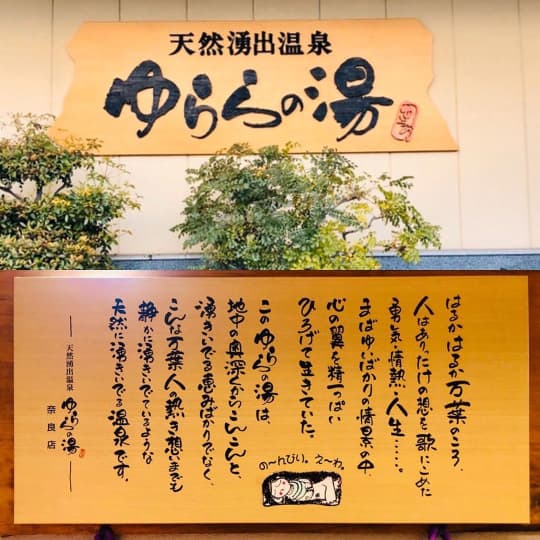 天然湧出温泉
ゆららの湯
はるかはるか万葉のころ、
人はあったけの想を歌にこめた
勇気・情熱・人生……。
まばゆいばかりの情景の中、
心の翼を精一っぱい
ひろげて生きていた。
このゆららの湯は、
地中の奥深くからこんこんと、
湧きいでる恵みばかりでなく、
こんな万葉人の熱き想いまでも
静かに湧きいでているような
天然に湧きいでる温泉です。
の〜んびり。え〜わ。
天然湧出温泉
ゆららの湯
奈良店